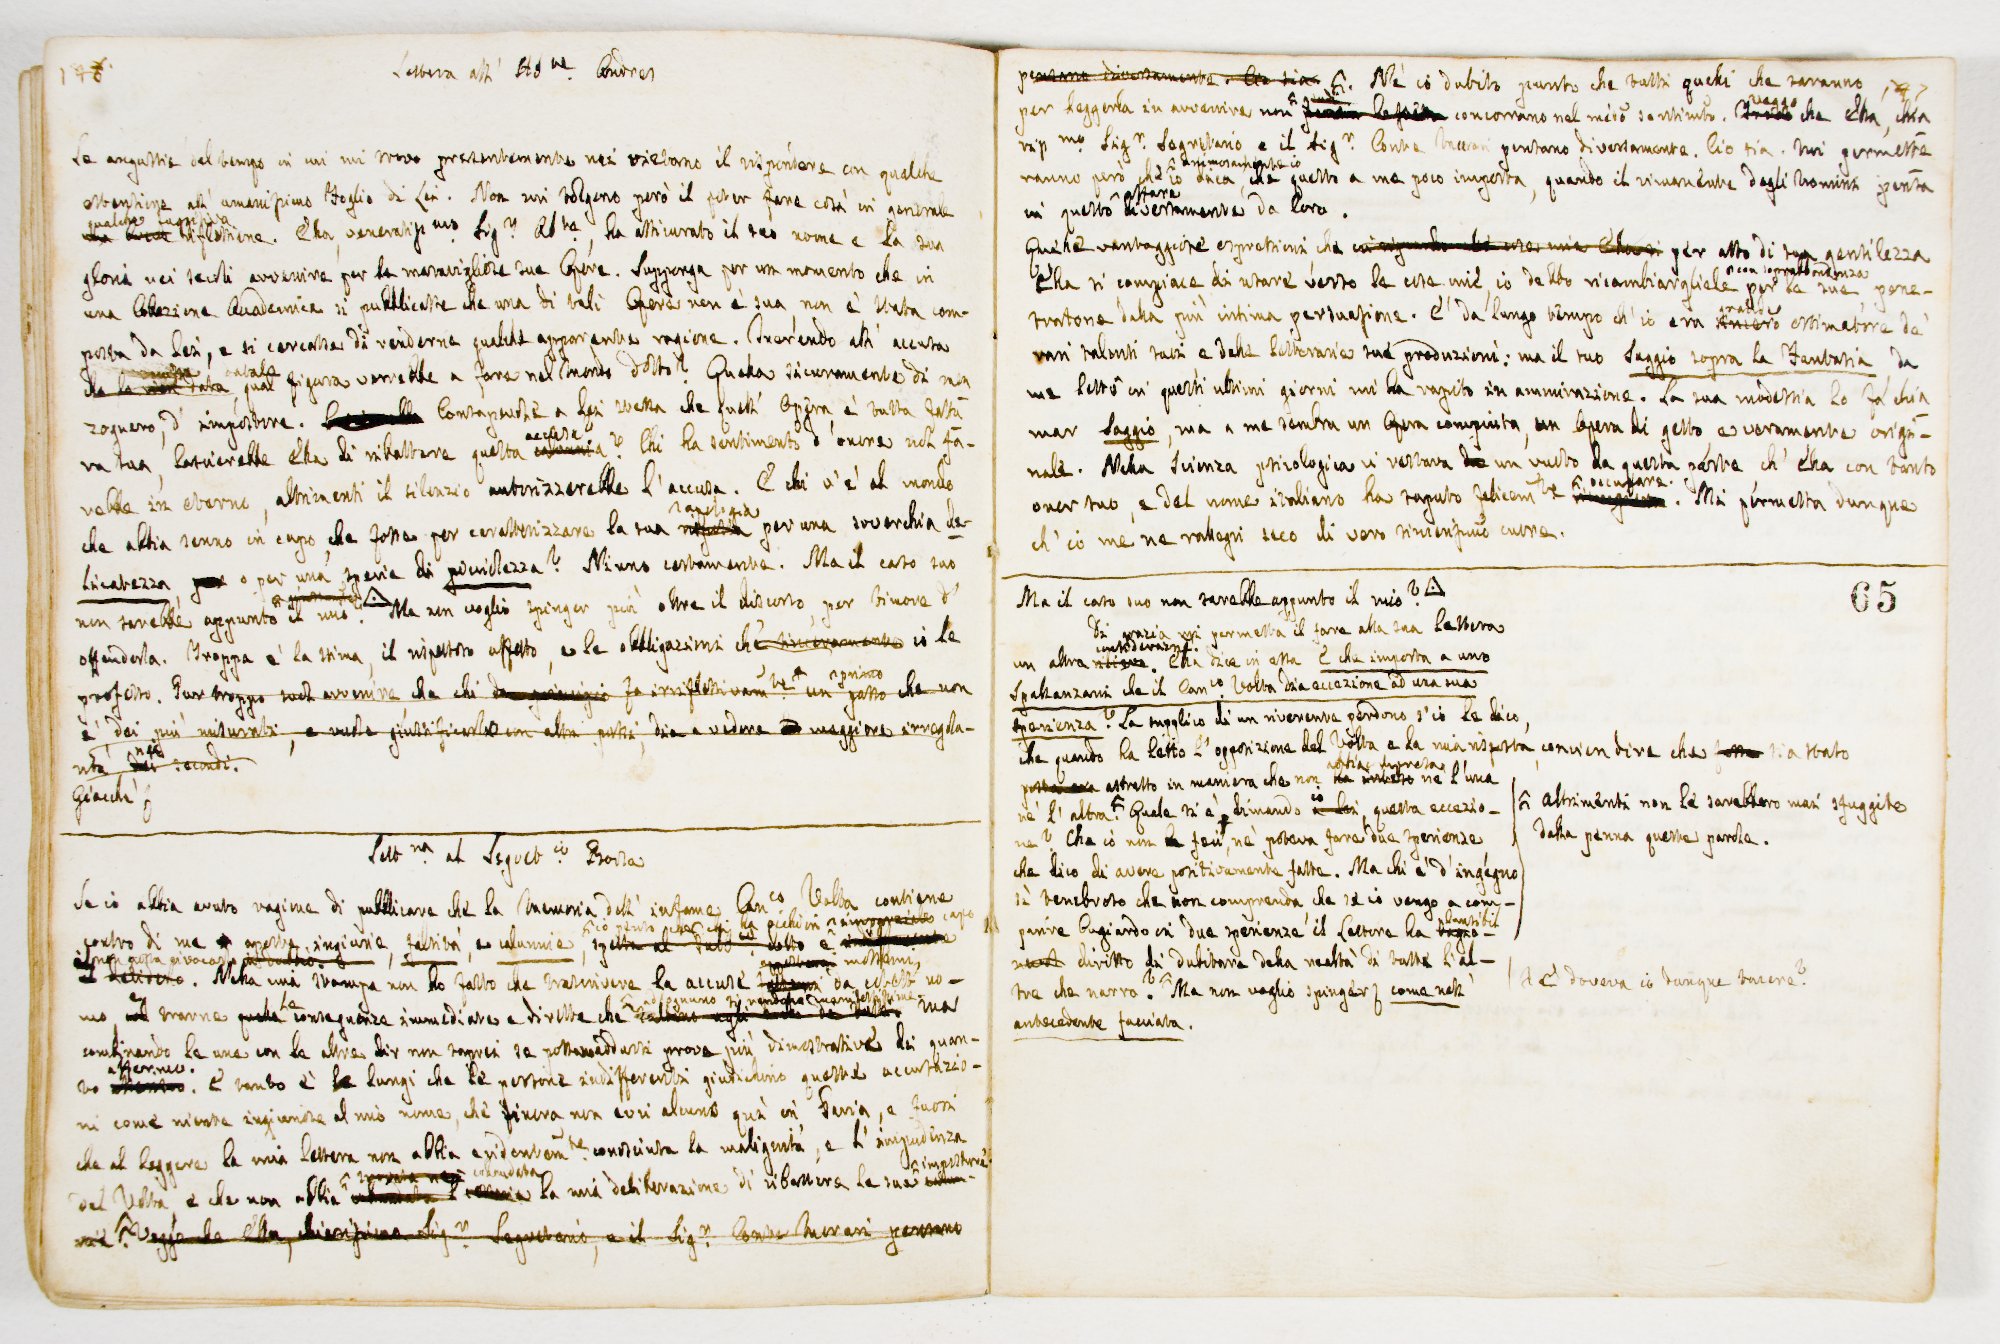 146
Lettera all' Ab.te Andres
Le angustie del tempo in cui mi trovo presentemente mi vietano il rispondere con qualche
estensione all' umanissimo Foglio di Lei. Non mi tolgono però il poter fare così in generale
qualche
riflessione. Ella, veneratiss.mo Sig.r Ab.te, ha assicurato il suo nome e la sua
gloria nei secoli avvenire per le maravigliose sue Opere. Supponga per un momento che in
una Collezione Accademica si pubblicasse che una di tali Opere non è sua, non è stata com-
posta da Lei, e si cercasse di renderne qualche apparente ragione. Inerendo all' accusa
che le qual figura verrebbe a fare nel Mondo dotto? Quella sicuramente di men
zognero, d' impostore. Consapevole a Lei stessa che quell' Opera è tutta fattu
accusa
ra sua, lascierebbe Ella di ribattere questa calunnia? Chi ha sentimento d' onore nol fa-
rebbe in eterno, altrimenti il silenzio autorizzerebbe l' accusa. E chi v' è al mondo
l'apologia
che abbia senno in capo, che fosse per caratterizzare la sua risposta per una soverchia de-
licatezza, o per una specie di picciolezza? Niuno certamente. Ma il caso suo
non sarebbe appunto il mio? Ma non voglio spinger più oltre il discorso, per timore d'
offenderla. Troppa è la stima, il rispettoso affetto, e le obbligazioni che sinceramente io le
primo
professo. Pur troppo suol avvenire che chi da principio fa irriflessivam.te un passo che non
è dei più misurati, e vuole giustificarlo con altri passi, dia a vedere maggiore irregola-
ne'
rità nei secondi.
Giacchè
Lett.ra al Segret.io Borsa
Se io abbia avuto ragione di pubblicare che la Memoria dell' infame Can.co Volta contiene
contro di me aperte ingiurie, falsità, e calunnie,
il delitto. Nella mia stampa non ho fatto che trascrivere le accuse da cotest' uo-
le ad ognuno si rendono manifestissime
mo e trarne quelle conseguenze immediate e dirette che Ma
combinando le une con le altre dir non saprei se possano addursi prove più dimostrative di quan-
affermo.
to . E tanto è lungi che le persone indifferenti giudichino queste accusazio-
ni come niente ingiuriose al mio nome, che finora non evvi alcuno quì in Pavia, e fuori
che al leggere la mia lettera non abbia evidentem.te conosciuta la malignità, e l' impudenza
imposture
del Volta e che non abbia la mia deliberazione di ribattere le sue calun-
nie. Vegga che Ella, chiarissimo Sig.r Segretario, e il Sig.r Conte Murari pensano
147
pensano diversamente. Ciò sia. Nè io dubito punto che tutti quelli che saranno
per leggerla in avvenire non concorrano nel med.o sentim.to. Veggo che Ella, chia
riss.mo Sig.r Segretario e il Sig.r Conte Murari pensano diversamente. Ciò sia. Mi permette
animosamente io
ranno però che io dica, che questo a me poco importa, quando il rimanente degli Uomini pensa
affare
in questo diversamente da loro.
Quelle vantaggiose espressioni che per atto di sua gentilezza
con sovrabbondanza
Ella si compiace di usare verso le cose mie, io debbo ricambiargliele per le sue pene-
tratone dalla più intima persuasione. E' da lungo tempo ch' io era estimatore de'
rari talenti suoi e delle letterarie sue produzioni: ma il suo Saggio sopra la Fantasia da
me letto in questi ultimi giorni mi ha rapito in ammirazione. La sua modestia lo fa chia
mar Saggio, ma a me sembra un Opera compiuta, un Opera di getto, e veramente origi-
nale. Nella Scienza psicologica ci restava un vuoto da questa parte ch' Ella con tanto
occupare.
onor suo, e del nome italiano ha saputo felicem.te . Mi permetta dunque
ch' io me ne rallegri seco di vero sincerissimo cuore.
65
Ma il caso suo non sarebbe appunto il mio?
Di grazia mi permetta il fare alla sua Lettera
considerazione.
un altra . Ella dice in essa E che importa a uno
Spallanzani che il Can.co Volta dia eccezione ad una sua
sperienza? La supplico di un riverente perdono s' io le dico,
che quando ha letto l' opposizione del Volta e la mia risposta, convien dire che sia stato
abbia impressa
astretto in maniera che non nè l' una
nè l' altra. Quale si è, dimando io a Lei, questa eccezio-
ne? Che io non feci, nè poteva fare due sperienze
che dico di avere positivamente fatte. Ma chi è d' ingegno
sì tenebroso che non comprenda che se io vengo a com-
parire bugiardo in due sperienze il Lettore ha
diritto di dubitare della realtà di tutte l' al-
tre che narro? Ma non voglio spinger come nell'
antecedente facciata.
Altrimenti non le sarebbero mai sfuggite
dalla penna queste parole.
E doveva io dunque tacere?